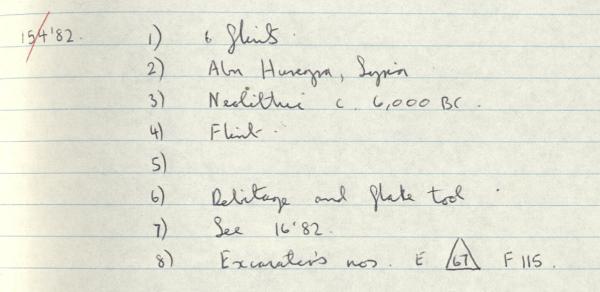 154'82. 1) 6 flints.
2) Abu Hureyra, Syria
3) Neolithic c. 6,000 BC.
4) Flint.
5)
6) Debitage and flake tool.
7) See 16'82.
8) Excavator's nos. E 67 F 115.